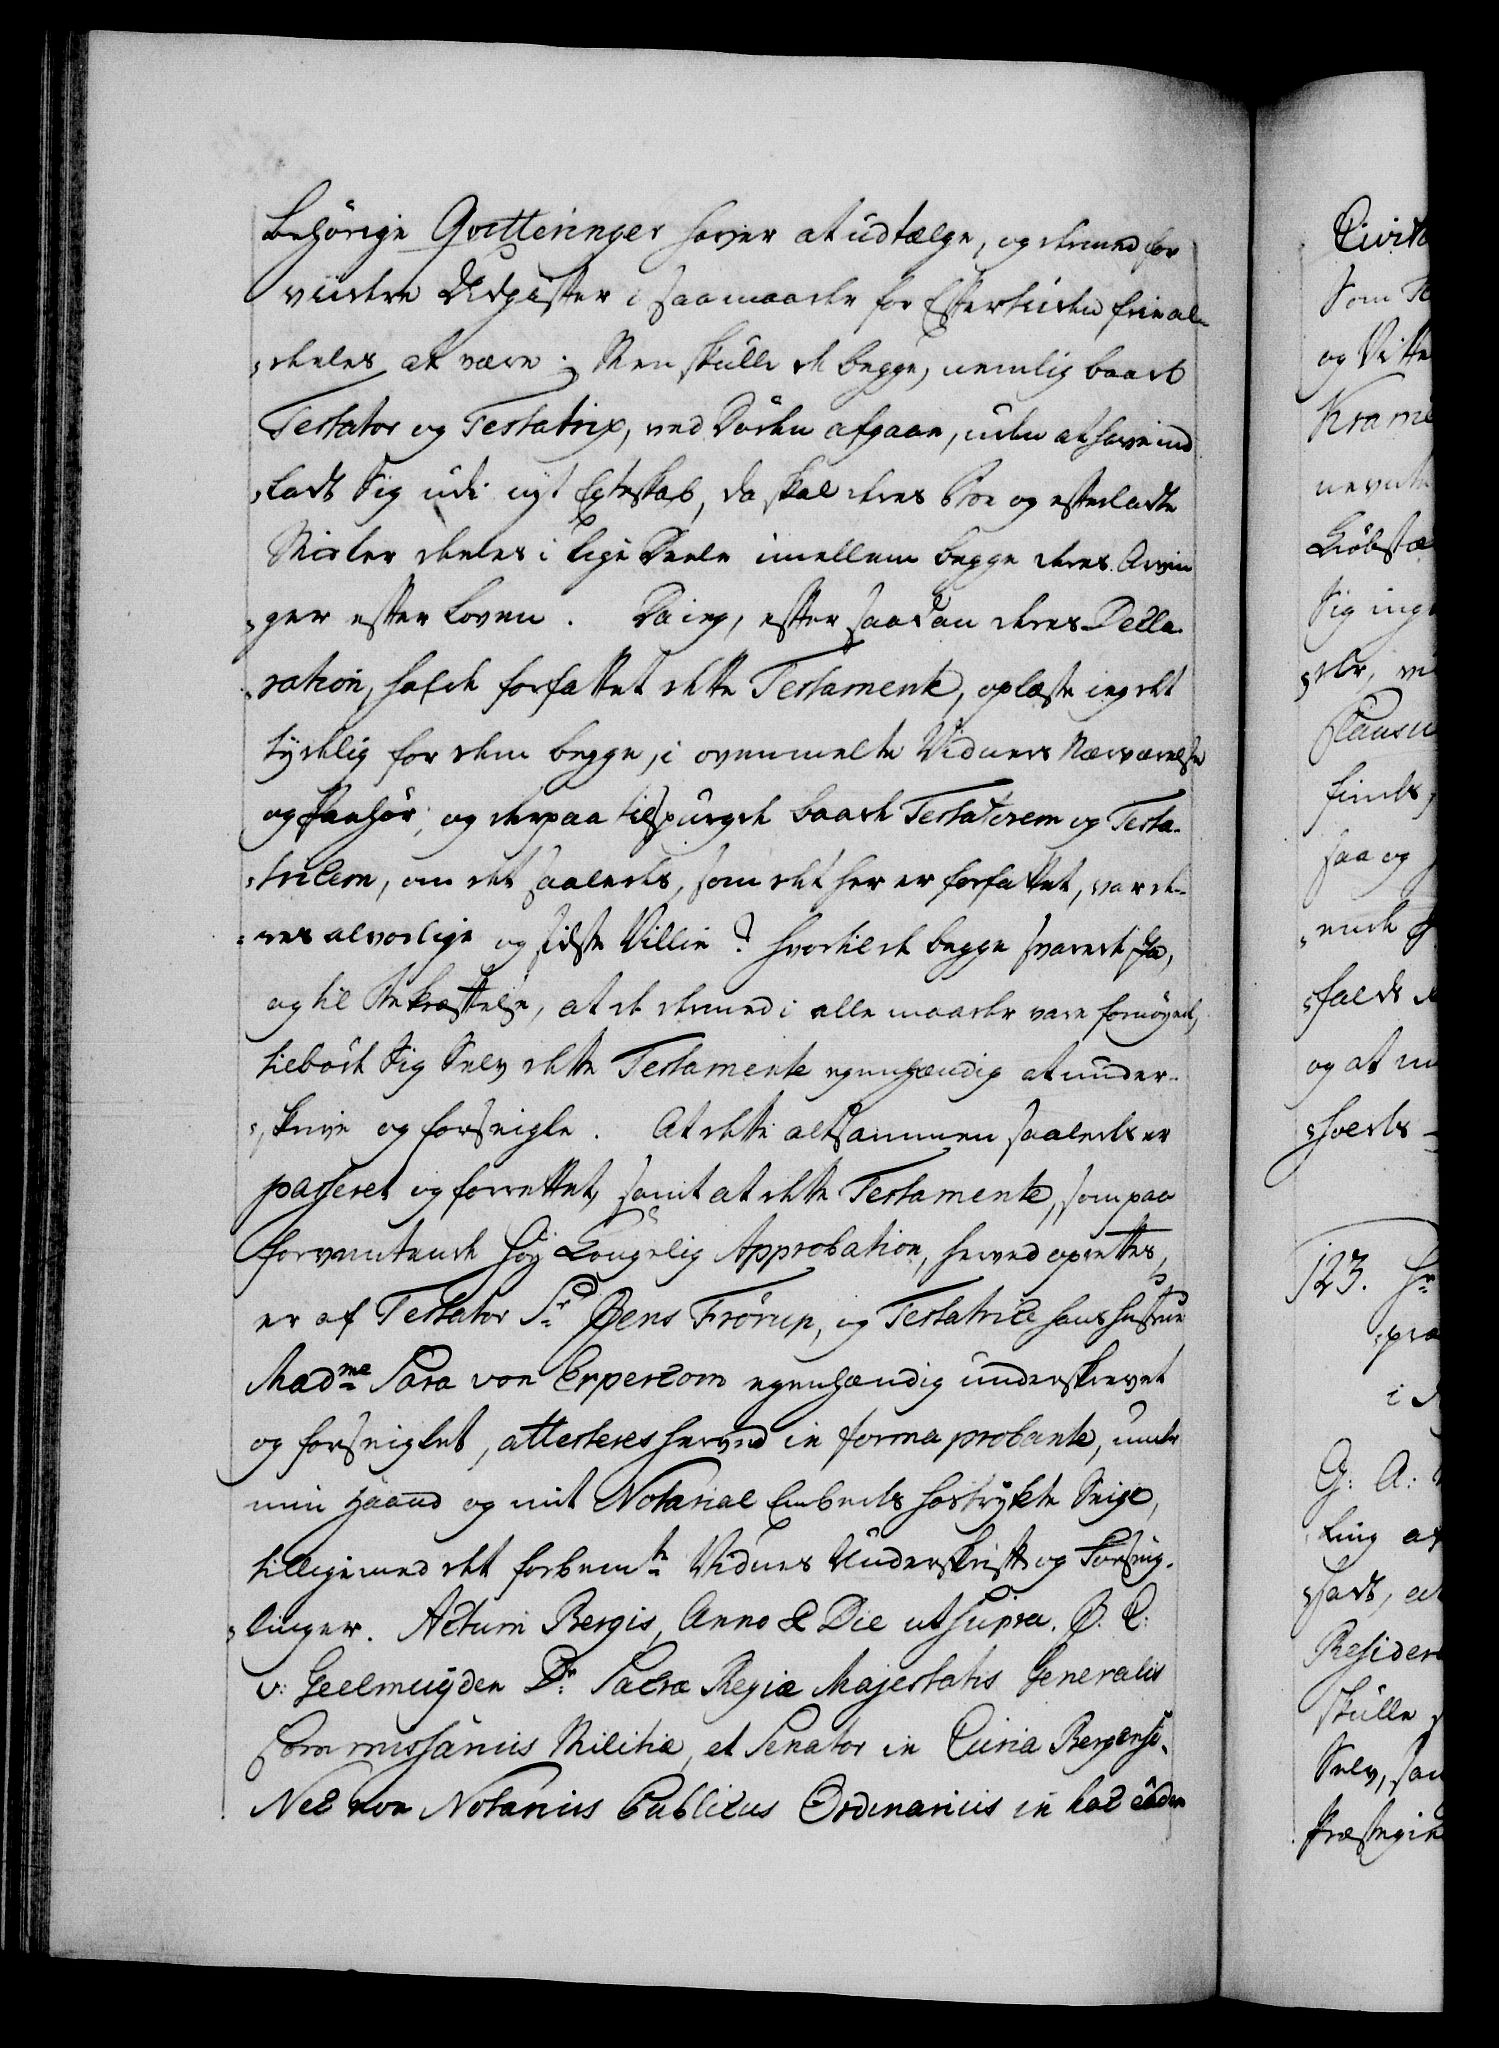 behörige Qvitteringer haver at udtælge, og dermed for
viidere Udgifter i saamaade for Eftertiiden frie al-
deeles at være. Men skulle de begge, nemlig baade
Testator og Testatrix, ved Döden afgaae, uden at have ind
ladt Sig udi nyt Egteskab, da skal deres Boe og efterladte
Midler deeles i lige Deele imellem begge deres Arvin
ger efter Loven. Da ieg, efter saadan deres Decla
ration, hafde forfattet dette Testamente, oplæste ieg det
tydelig for dem begge, i ovenmelte Vidners Nærværelse
og Paahör, og derpaa tilspurgde baade Testatorem og Testa-
tricem, om det saaledes, som det her er forfattet, var de-
res alvorlige og sidste Villie? hvortil de begge svarede Ja,
og til Bekræftelse, at de dermed i alle maader vare fornöyede,
tilböd Sig Selv dette Testamente egenhændig at under-
skrive og forseigle. At dette altsammen saaledes er
passeret og forrettet, samt at dette Testamente, som paa
forventende höy Kongelig Approbation, herved oprettes,
er af Testator Sr Jens Frörup, og Testatrice hans Hustrue
Madme Sara von Erpecom egenhændig underskrevet
og forseiglet, attesteres herved in forma probante, under
min Haand og mit Notarial Embeds hostrykte Seigl,
tilligemed det forbemte Vidners Underskrift og Forseig-
linger. Actum Bergis, Anno & Die ut supra. J. C:
v: Geelmuyden Dr. Sacræ Regiæ Majestatis Generalis
Commissarius Militiæ, et Senator in Curia Bergensi,
Nec non Notarius Publicus Ordinarius in hac eadem
123.